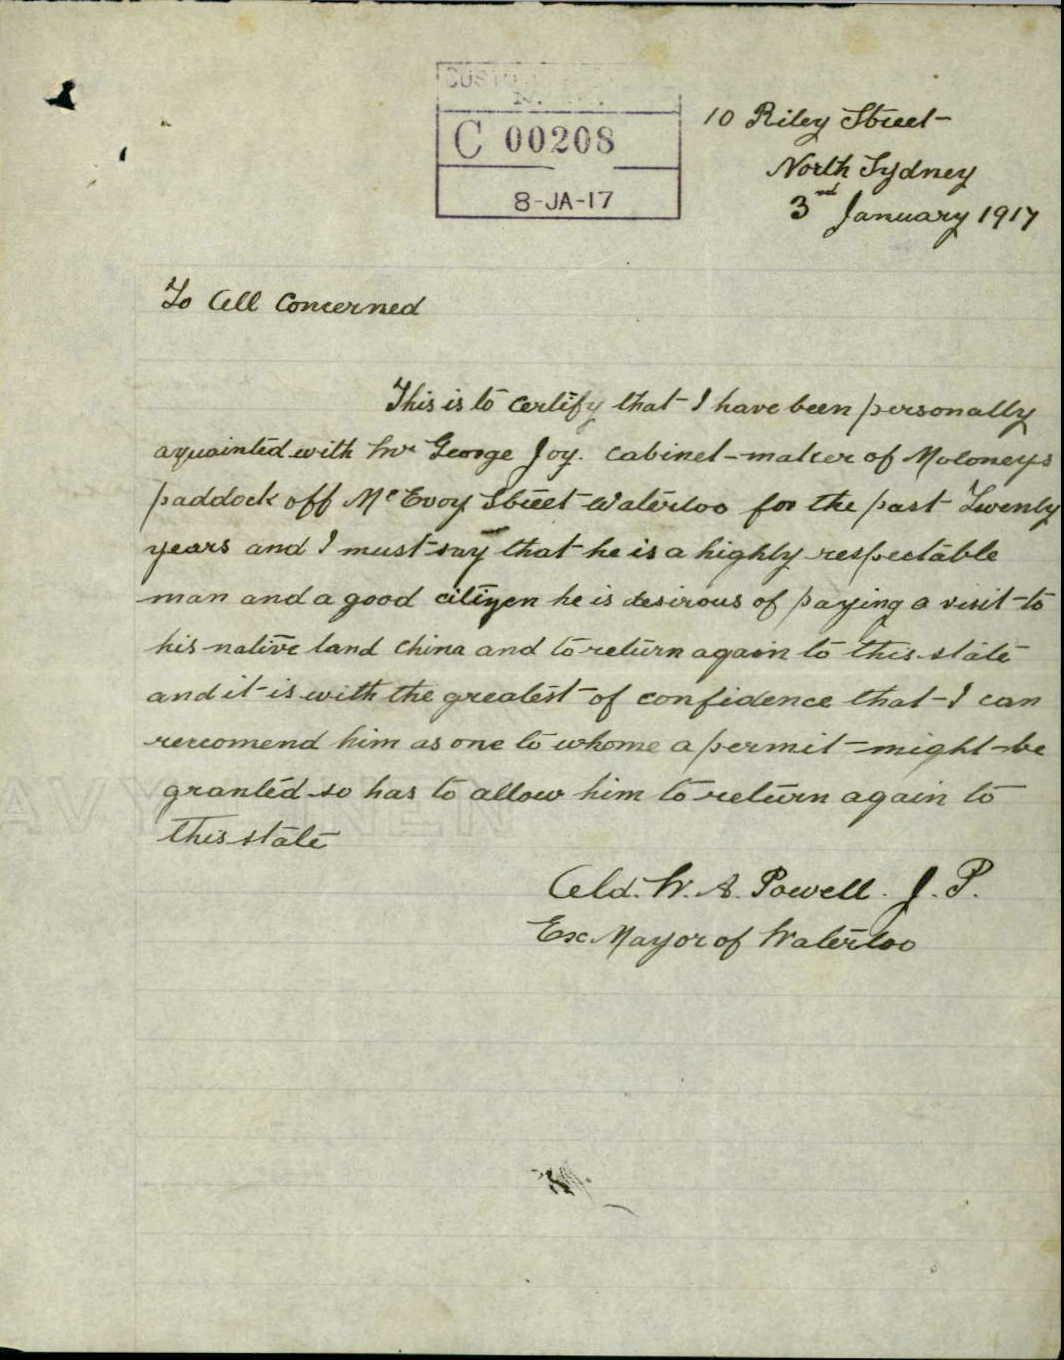 CUST
N.
C 00208
8-JA-17
10 Riley Street
North Sydney
3rd January 1917
To All Concerned
This is to certify that I have been personally
aquainted with Mr George Joy. cabinet-maker of Moloneys
paddock off McEvoy Street Waterloo for the past Twenty
years and I must say that he is a highly respectable
man and a good citizen he is desirous of paying a visit to
his native land China and to return again to this state
and it is with the greatest of confidence that I can
reccomend him as one to whome a permit might be
granted so has to allow him to return again to
this state
Ald. W. A. Powell. J. P.
Ex. Mayor of Waterloo